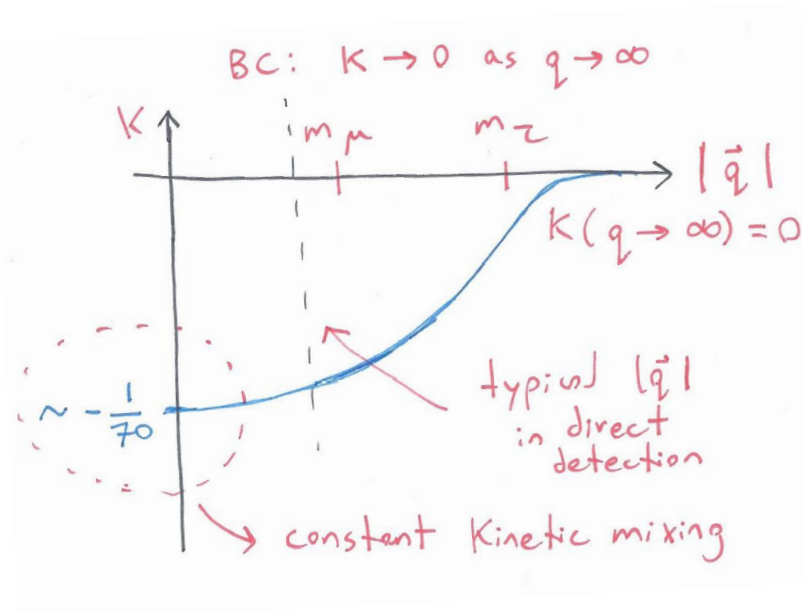 BC: K → 0 as q → ∞
K
m μ
m τ
|q⃗|
K(q → ∞) = 0
~ - 1/70
typical |q⃗|
in direct
detection
constant kinetic mixing